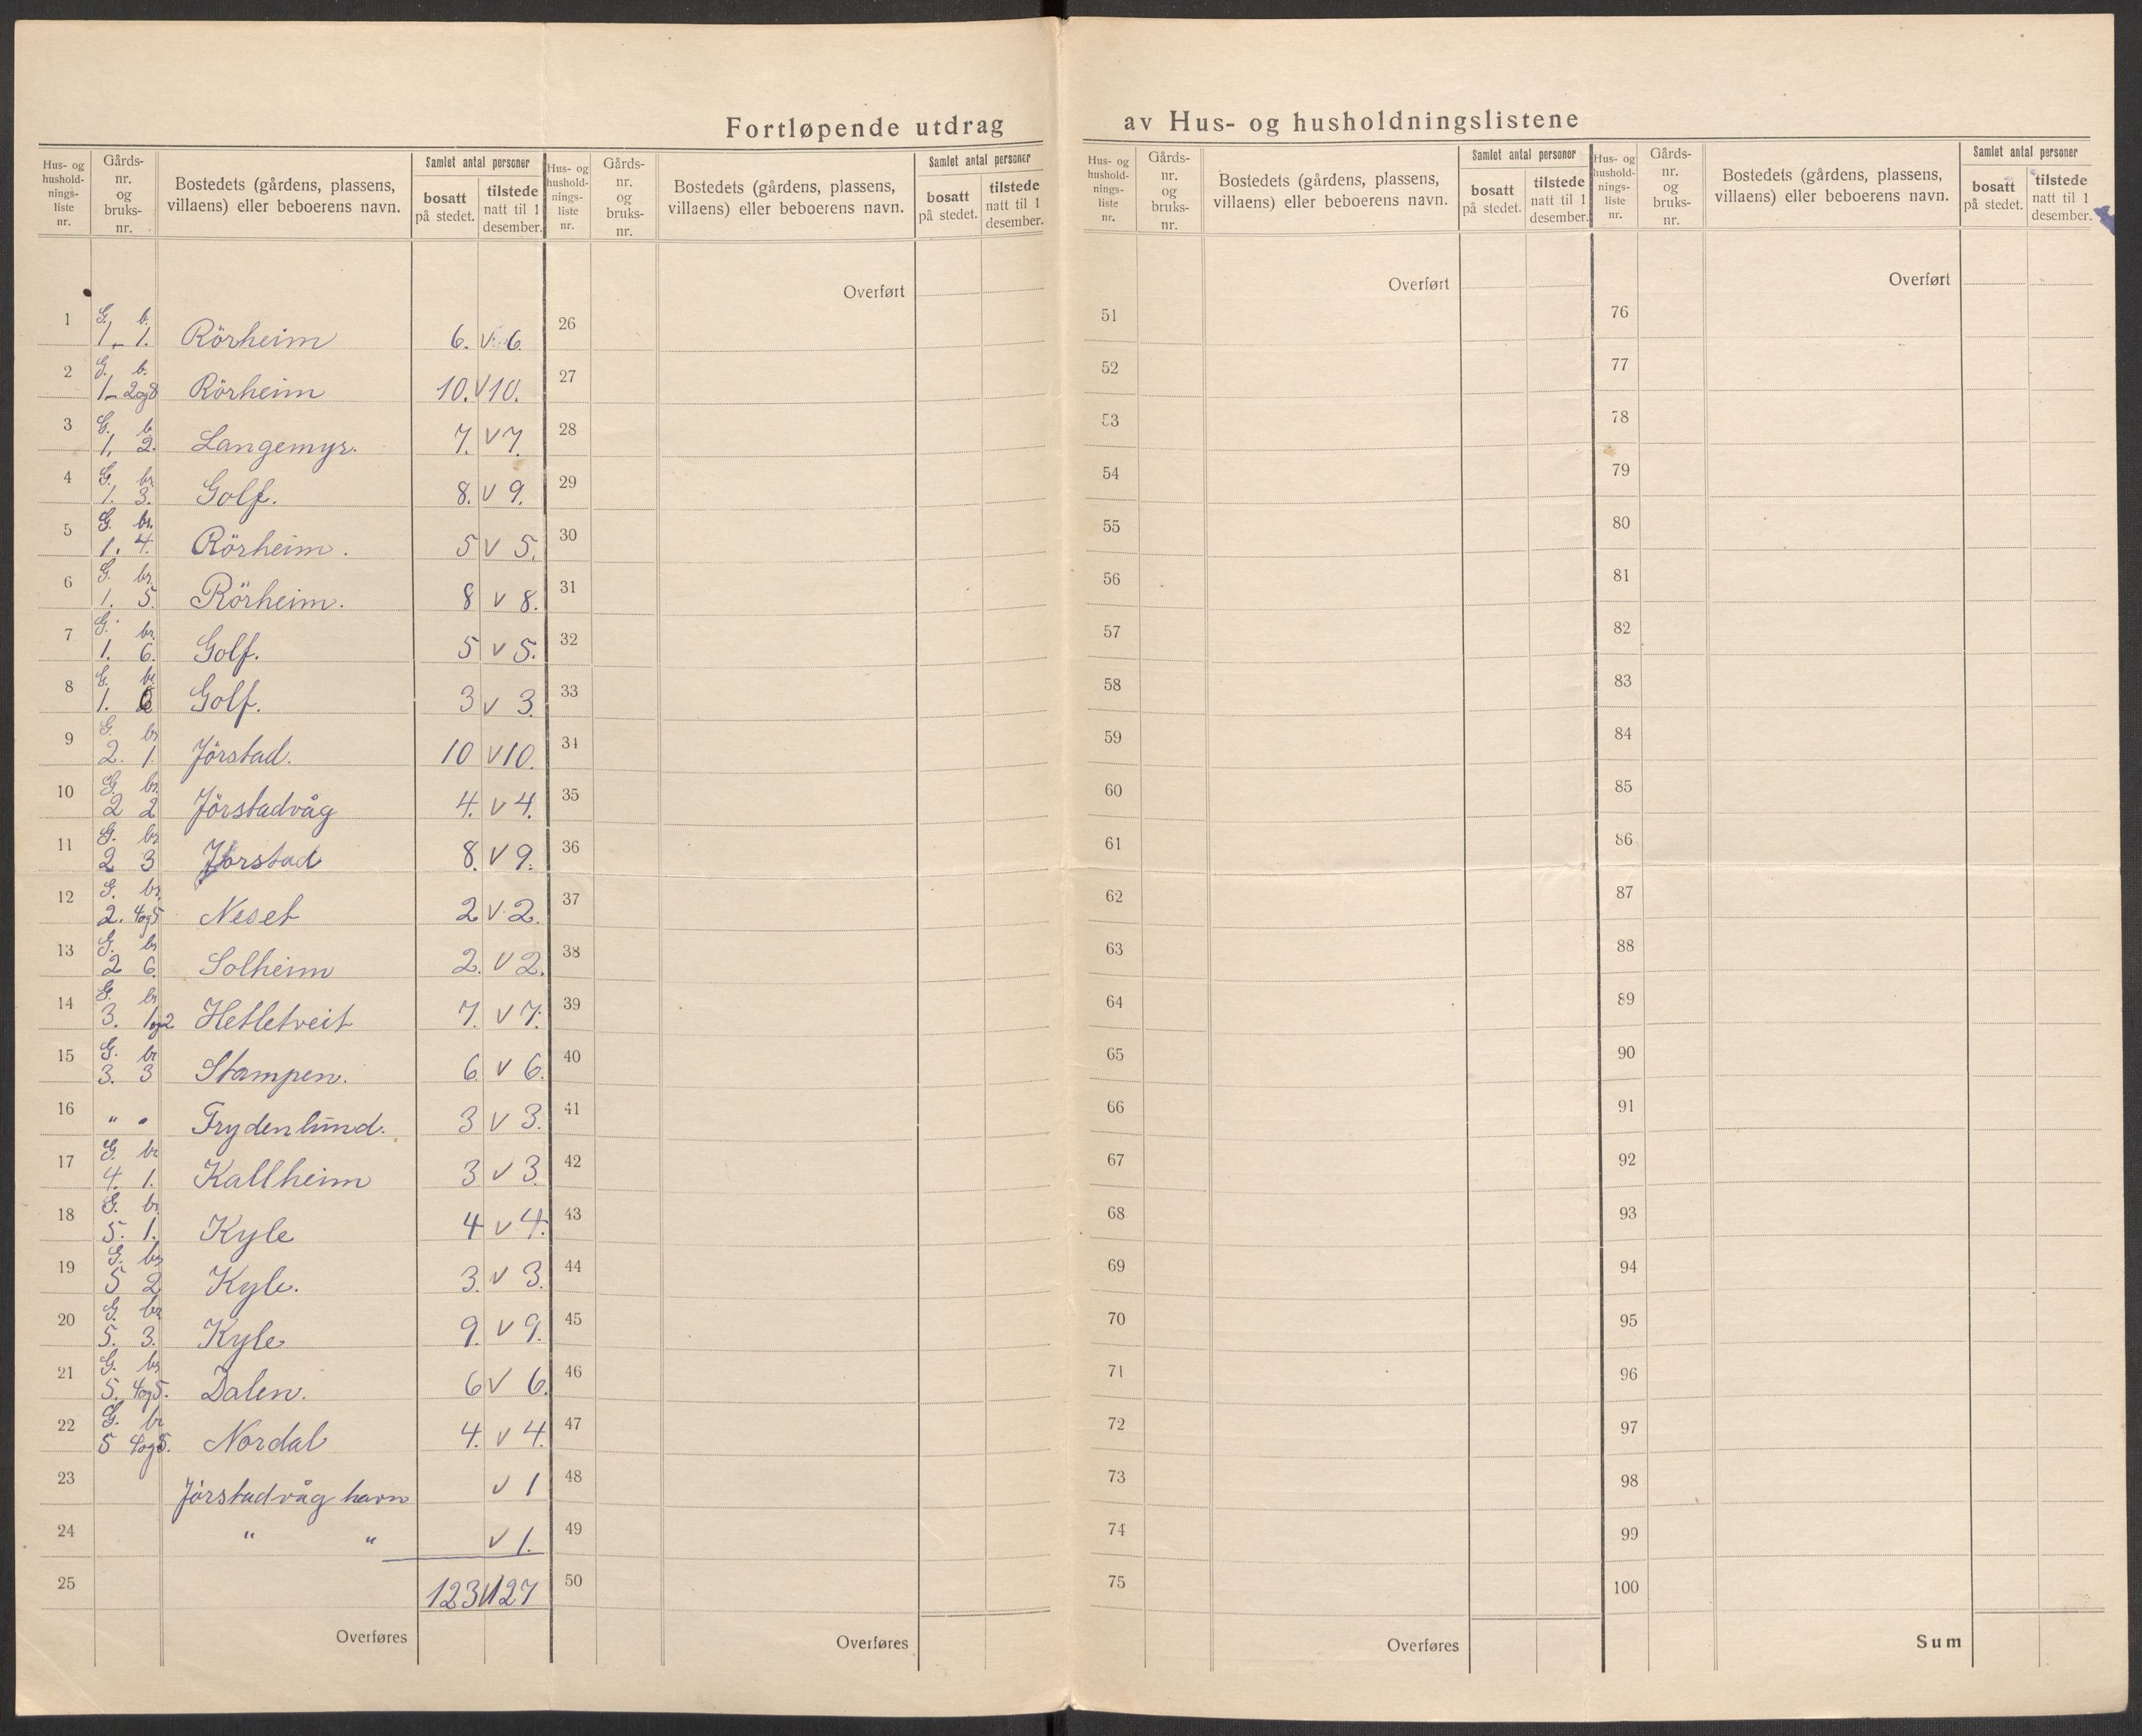 Fortløpende utdrag av Hus- og husholdningslistene
Hus- og hushold-nings-liste nr. | Gårds-nr. og bruks-nr. | Bostedets (gårdens, plassens, villaens) eller beboerens navn. | Samlet antal personer | bosatt på stedet. | tilstede natt til 1 desember.
1 G. b. 1, 1. Rörheim 6. v 6.
2 G. b. 1 - 2og8 Rörheim 10. v 10.
3 G. b 1, 2. Langemyr. 7. v 7.
4 G. br. 1. 3. Golf. 8. v 9.
5 G. br. 1. 4. Rörheim. 5 v 5.
6 G. br. 1. 5. Rörheim. 8 v 8.
7 G. br. 1. 6. Golf. 5 v 5.
8 G. br. 1. 6 Golf. 3 v 3.
9 G. br 2. 1. Jörstad. 10 v 10.
10 G. br. 2 2 Jörstadvåg 4. v 4.
11 G. br 2 3 Jörstad 8. v 9.
12 G. br. 2. 4og5 Neset 2 v 2.
13 G. br 2 6. Solheim 2. v 2.
14 G. br 3. 1og2 Hetletveit 7. v 7.
15 G. br 3. 3 Stampen. 6 v 6.
16 " " Frydenlund. 3 v 3.
17 G. br 4. 1. Kallheim 3 v 3.
18 G. br. 5. 1. Kyle 4 v 4.
19 G. br 5 2 Kyle. 3. v 3.
20 G. br 5. 3. Kyle 9. v 9.
21 G. br 5. 4og5. Dalen. 6 v 6.
22 G. br 5 4og5. Nordal 4. v 4.
23 Jörstadvåg havn v 1
24 " " v 1.
25 123 v 127
Overføres
Hus- og hushold-nings-liste nr. | Gårds-nr. og bruks-nr. | Bostedets (gårdens, plassens, villaens) eller beboerens navn. | Samlet antal personer | bosatt på stedet. | tilstede natt til 1 desember.
Overført
26
27
28
29
30
31
32
33
34
35
36
37
38
39
40
41
42
43
44
45
46
47
48
49
50
Overføres
Hus- og hushold-nings-liste nr. | Gårds-nr. og bruks-nr. | Bostedets (gårdens, plassens, villaens) eller beboerens navn. | Samlet antal personer | bosatt på stedet. | tilstede natt til 1 desember.
Overført
51
52
53
54
55
56
57
58
59
60
61
62
63
64
65
66
67
68
69
70
71
72
73
74
75
Overføres
Hus- og hushold-nings-liste nr. | Gårds-nr. og bruks-nr. | Bostedets (gårdens, plassens, villaens) eller beboerens navn. | Samlet antal personer | bosatt på stedet. | tilstede natt til 1 desember.
Overført
76
77
78
79
80
81
82
83
84
85
86
87
88
89
90
91
92
93
94
95
96
97
98
99
100
Sum